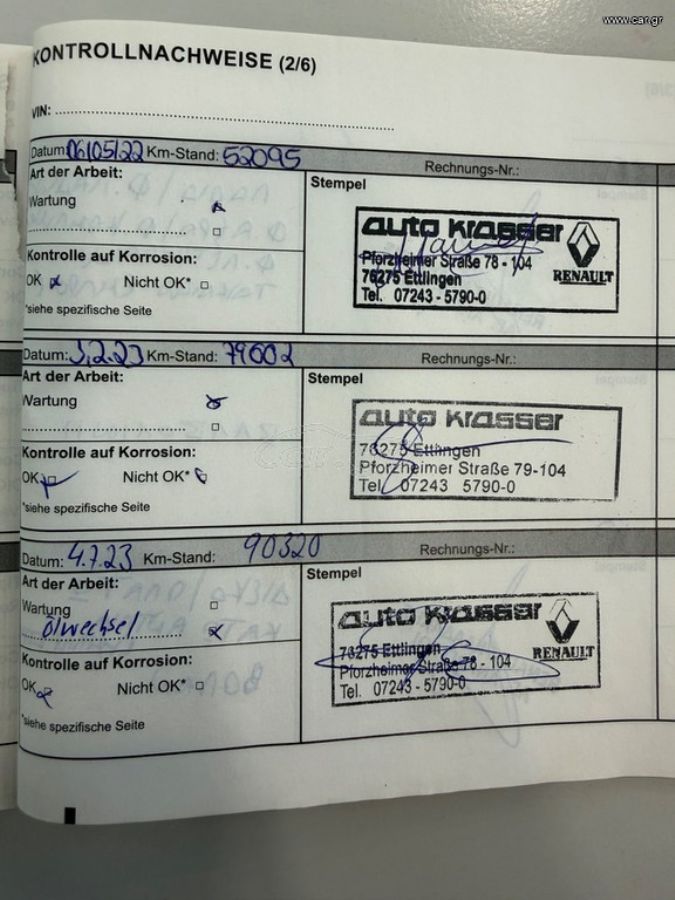 www.car.gr
KONTROLLNACHWEISE (2/6)
VIN:
Datum: 06/05/22 Km-Stand: 52095 Rechnungs-Nr.:
Art der Arbeit:
Stempel
Wartung
auto krasser
Pforzheimer Straße 78 - 104
76275 Ettlingen
Tel. 07243 - 5790-0
RENAULT
Kontrolle auf Korrosion:
OK Nicht OK*
*siehe spezifische Seite
Datum: 3.2.23 Km-Stand: 79602 Rechnungs-Nr.:
Art der Arbeit:
Stempel
Wartung
auto krasser
76275 Ettlingen
Pforzheimer Straße 79-104
Tel. 07243 5790-0
Kontrolle auf Korrosion:
OK Nicht OK*
*siehe spezifische Seite
Datum: 4.7.23 Km-Stand: 90320 Rechnungs-Nr.:
Art der Arbeit:
Stempel
Wartung
Ölwechsel
auto krasser
76275 Ettlingen
Pforzheimer Straße 78 - 104
Tel. 07243 - 5790-0
RENAULT
Kontrolle auf Korrosion:
OK Nicht OK*
*siehe spezifische Seite